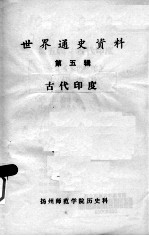 世界通史資料
第五辑
古代印度
扬州师范学院历史科